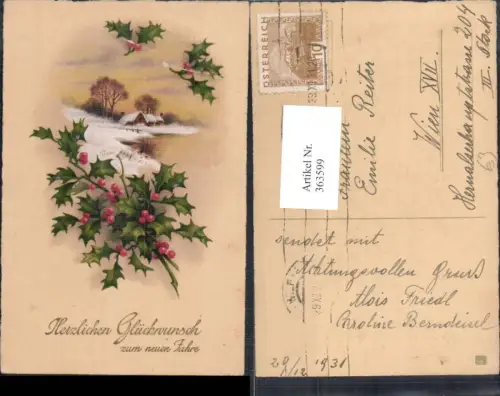 Herzlichen Glückwunsch
zum neuen Jahre
ÖSTERREICH
10
Artikel Nr.
363599
Fräulein
Emilie Reiter
Wien XVII.
Hernalserhauptstrasse 204
III. Stock
63
sendet mit
Achtungsvollen Gruß
Alois Friedl
Karoline
29/12 1931